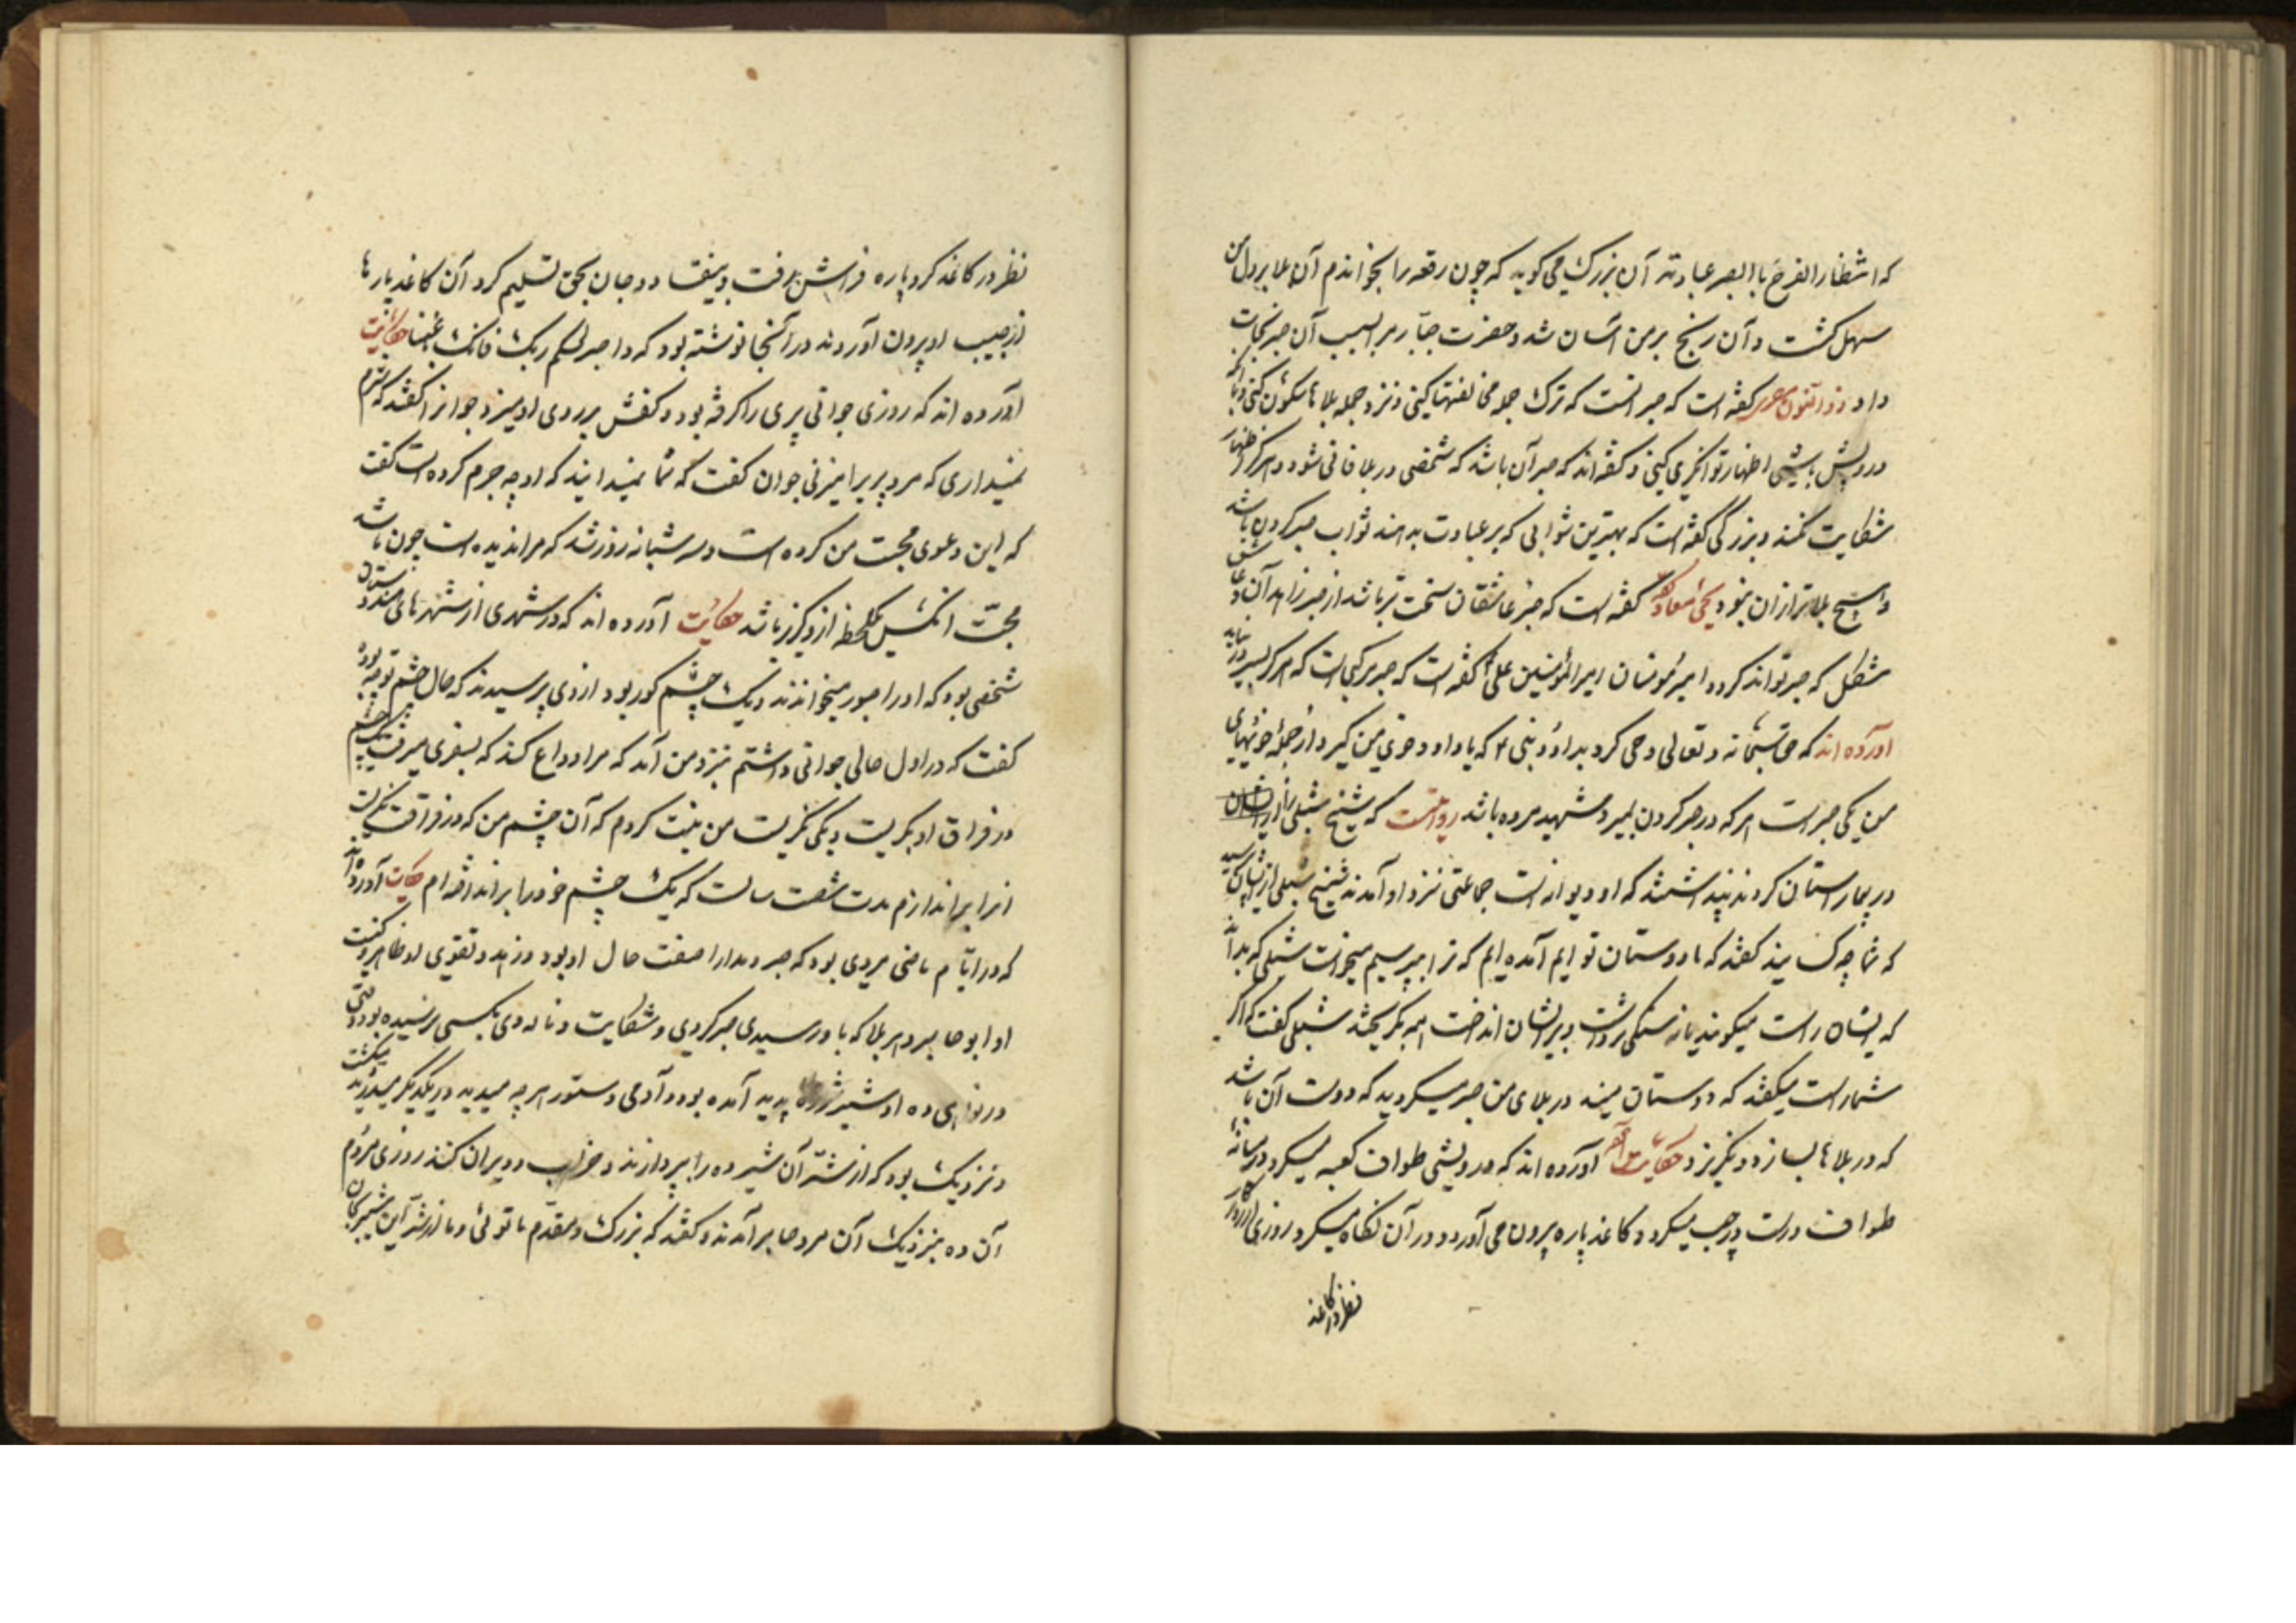 که انتظار الفرج باالصبر عبادته آن بزرک می کوید که چون رقعه را بخواندم آن بلا بر دل من
سهل کشت و آن رنج بر من آسان شد و حضرت جبار مرا بسبب آن صبر نجات
داد ذو النون مصری کفته است که صبر انست که ترک جمله مخالفتها کنی و نزد جمله بلاها سکون کنی و با انکه
درویش باشی اظهار توانکری کنی و کفته اند که صبر آن باشد که شخصی در بلا فانی شود و هرکز اظهار
شکایت نکند و بزرکی کفته است که بهترین ثوابی که بر عبادت بدهند ثواب صبر کردن باشد
و هیچ بالاتر از ان نبود یحیی معاذ کفته است که صبر عاشقان سخت تر باشد از صبر زاهدان و عاشق
مشکل که صبر تواند کرد و امیر مؤمنان امیر المؤمنین علی کفته است که صبر مرکبی است که هرکز بسر در نیاید
آورده اند که حق سبحانه و تعالی وحی کرد بداود نبی که یا داود خوی من کیر و از جمله خویهای
من یکی صبر است هر که در صبر کردن بمیرد شهید مرده باشد روایتست که شیخ شبلی را
در بیمارستان کردند پنداشتند که او دیوانه است جماعتی نزد او آمدند شیخ شبلی از یشان پرسید
که شما چه کسانید کفتند که ما دوستان تو ایم آمده ایم که ترا بپرسیم میخواست شبلی که بداند
که یشان راست میکویند یا نه سنکی برداشت و بر یشان انداخت همه بکریختند شبلی کفت که اکر
شما راست میکفتید که دوستان منید در بلای من صبر میکردید که دوست آن باشد
که در بلاها بسازد و نکریزد حکایت آورده اند که درویشی طواف کعبه میکرد در میانه
طواف دست در جیب میکرد و کاغذ پاره بیرون می آورد و در آن نکاه میکرد روزی
نظر در کاغذ
نظر در کاغذ کرد پاره فراتش برفت و بیفتاد و جان بحق تسلیم کرد آن کاغذ پارها
از جیب او بیرون آوردند در آنجا نوشته بود که واصبر لحکم ربک فانک باعیننا حکایت
آورده اند که روزی جوانی پیری را کرفته بود و کفش بر روی او میزد جوانرا کفتند که شرم
نمیداری که مرد پیر را میزنی جوان کفت که شما نمیدانید که او چه جرم کرده است کفت
که این دعوی محبت من کرده است و سه شبانه روز شد که مرا ندیده است چون باشد
محبت انکس یک لحظه از او کزیر باشد حکایت آورده اند که در شهری از شهرهای هندوستان
شخصی بود که او را صبور میخواندند و یک چشم کور بود از وی پرسیدند که حال چشم تو چه بوده
کفت که در اول حالی جوانی داشتم نزد من آمد که مرا وداع کند که بسفری میرفت یک چشم
در فراق او بکریست و یکی نکریست من نیت کردم که آن چشم من که در فراقت نکریست
انرا براندازم مدت شصت سالست که یک چشم خود را برانداخته ام حکایت آورده اند
که در ایام ماضی مردی بود که صبر و مدارا صفت حال او بود و زهد و تقوی او ظاهر و کنیت
او ابو صابر و هر بلا که باو رسیدی صبر کردی و شکایت و ناله وی بکسی نرسیده بود وقتی
در نواحی ده او شیر شرزه پدید آمده بود و آدمی و ستور هر چه میدید و میدرید و میکشت
و نزدیک بود که از شر آن شیر ده را بپردازند و خراب و ویران کنند روزی مردم
آن ده بنزدیک آن مرد صابر آمدند و کفتند که بزرک و مقدم ما توئی و ما از شر این شیر بجان